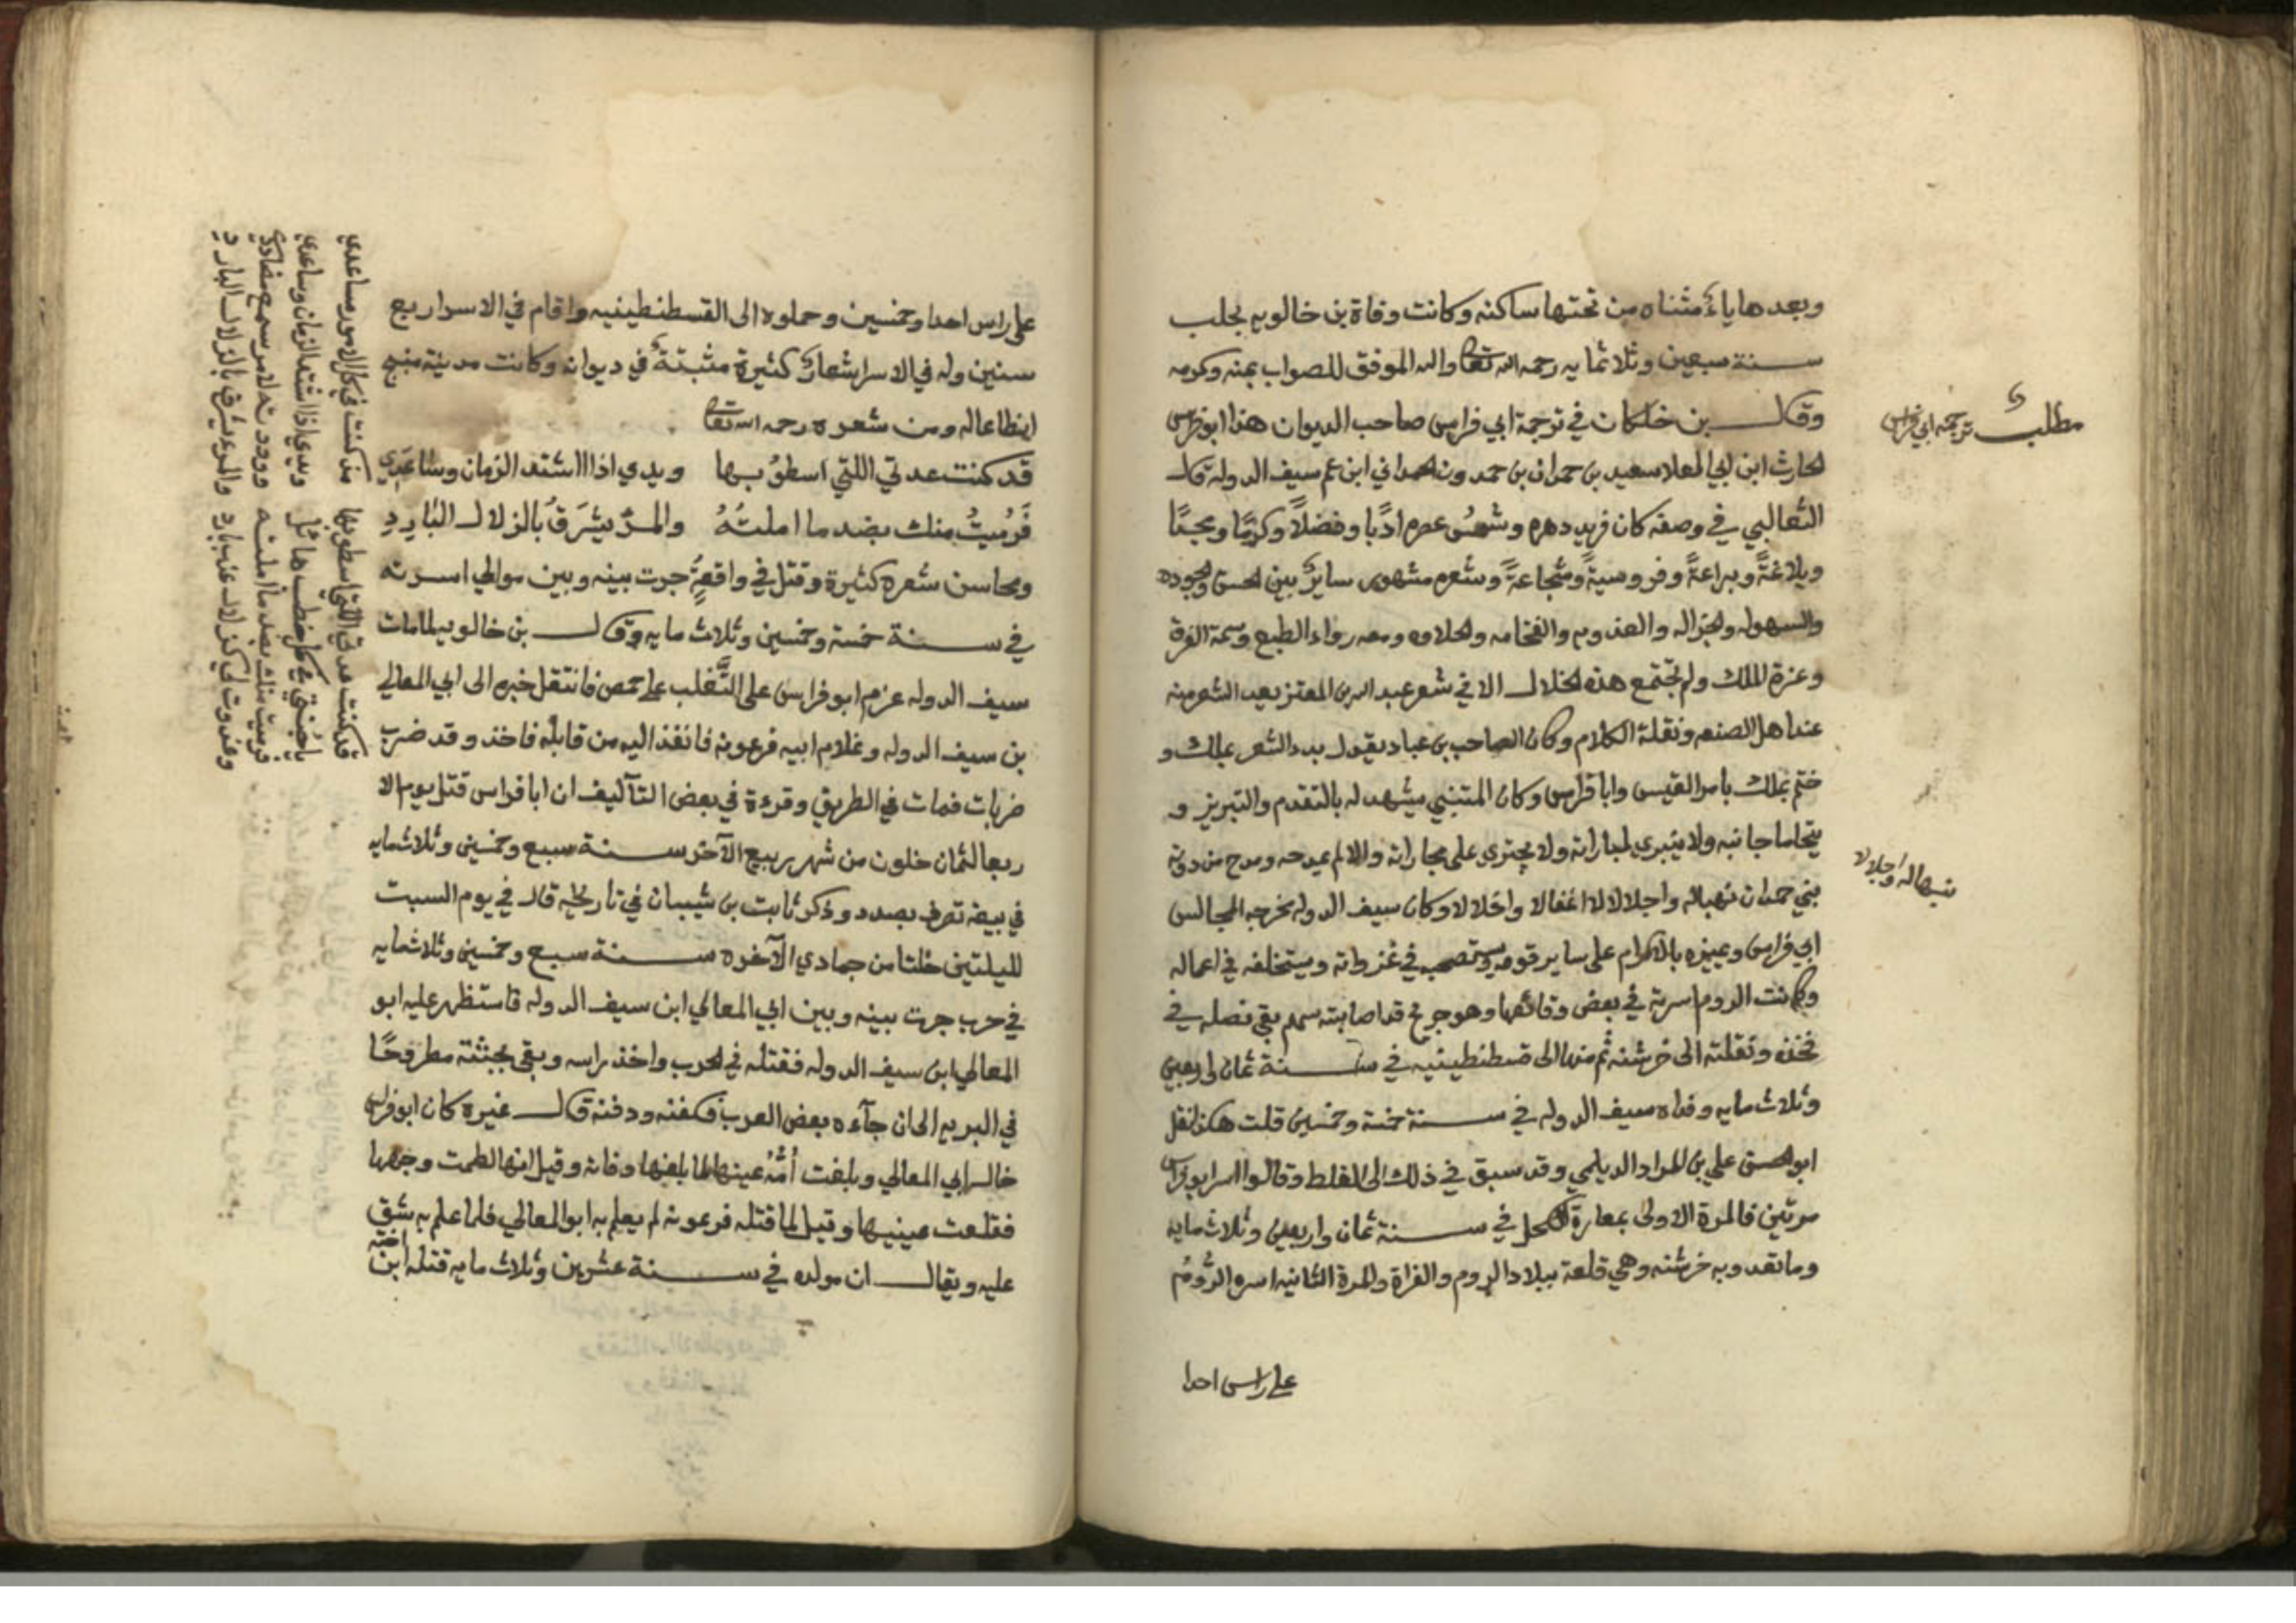 وبعدها ياء مثناه من تحتها ساكنه وكانت وفاة بن خالويه بحلب
سنة سبعين وثلاثمايه رحمه الله تعالى والله الموفق للصواب بمنه وكرمه
وقال بن خلكان في ترجمة ابي فراس صاحب الديوان هذا ابو فراس
الحارث ابن ابي العلا سعيد بن حمدان بن حمدون الحمداني ابن عم سيف الدوله قال
الثعالبي في وصفه كان فريد دهره وشمس عصره ادبًا وفضلاً وكرمًا ومجدًا
وبلاغةً وبراعةً وفروسيةً وشجاعةً وشعره مشهور سايرٌ بين الحسن والجوده
والسهوله والجزاله والعذوبه والفخامه والحلاوه ومعه رواء الطبع وسمة الظرف
وعزة الملك ولم تجتمع هذه الخلال الا في شعر عبد الله بن المعتز يعد الشعر منه
عند اهل الصنعه ونقلة الكلام وكان الصاحب بن عباد يقول بدء الشعر بملك و
ختم بملك بامر القيس وابا فراس وكان المتنبي يشهد له بالتقدم والتبريز و
يتحاما جانبه ولا ينبري لمباراته ولا يجتري على مجاراته والا لم يمدحه ومدح من دونه
بني حمدان تهيبا له واجلالا لا اغفالا واخلالا وكان سيف الدوله المجالس
ابي فراس ويميزه بالاكرام على ساير قومه ويستصحبه في غزواته ويستخلفه في اعماله
وكانت الروم اسرته في بعض وقائعها وهو جرح قد اصابته سهم بقي نصله في
فخذه ونقلته الى خرشنه ثم منها الى قسطنطينيه في سنة ثمان واربعين
وثلاث مايه وفداه سيف الدوله في سنة خمسة وخمسين قلت هكذا نقل
ابو الحسن علي بن الديلمي وقد سبق في ذلك الى الغلط وقالوا اسر ابو فراس
مرتين فالمرة الاولى بمعارة الكحل في سنة ثمان واربعين وثلاث مايه
وما تعدو به خرشنه وهي قلعة ببلاد الروم والفراة والمرة الثانيه اسره الرُّومُ
على راس احدا
مطلب ترجمة ابي فراس
تهيبا له واجلالا
على راس احدا وخمسين وحملوه الى القسطنطينيه واقام في الاسر اربع
سنين وله في الاسر اشعار كثيرة مثبتة في ديوانه وكانت مدينة منبج
ايضا عاله ومن شعره رحمه الله تعالى
قد كنت عدتي اللتي اسطوُ بها ويدي اذا اشتد الزمان وساعدي
فَرُميتُ منك بضد ما املتُهُ والمرُّ يشرَقُ بالزلال البَارِدِ
ومحاسن شعره كثيرة وقتل في واقعةٍ جرت بينه وبين موالي اسرته
في سنة خمسة وخمسين وثلاث مايه وقال بن خالويه لما مات
سيف الدوله عزم ابو فراس على التَّغلب على حمص فانتقل خبره الى ابي المعالي
بن سيف الدوله وغلام ابيه فرعونه فانفذ اليه من قابله فاخذ وقد ضرب
ضربات فمات في الطريق وقرءة في بعض التآليف ان ابا فراس قتل يوم الا
ربعا لثمان خلون من شهر ربيع الآخر سنة سبع وخمسين وثلاث مايه
في بيعة تعرف بصدد وذكر ثابت بن شيبان في تاريخه قال في يوم السبت
لليلتين خلتا من جمادي الآخره سنة سبع وخمسين وثلاثمايه
في حرب جرت بينه وبين ابي المعالي ابن سيف الدوله فاستظهر عليه ابو
المعالي ابن سيف الدوله فقتله في الحرب واخذ راسه وبقى بجثته مطروحًا
في البريه الى ان جآءه بعض العرب فكفنه ودفنه قال غيره كان ابو فراس
خال ابي المعالي وبلغت اُمُّهُ عينها لما بلغها وفاته وقيل انها لطمت وجهها
فقلعت عينيها وقيل لما قتله فرعونه لم يعلم به ابو المعالي فلما علم به شق
عليه ويقال ان مولده في سنة عشرين وثلاث مايه قتله ابن
اخته
قد كنت عدتي اللتي اسطو بها مذ كنت في كل الامور مساعدي
ياجُنتي في كل خطب هائل ويدي اذا اشتد الزمان وساعدي
فرميت منك بضد ما املته
وغدوت لي كزلال عذب بارد والمرء يشرق بالزلال البارد